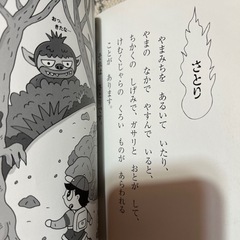 さとり
やまみちを あるいて いたり、
やまの なかで やすんで いると、
ちかくの しげみで、ガサリと おとが して、
けむくじゃらの くろい ものが あらわれる
ことが あります。
おっ、
きたな…